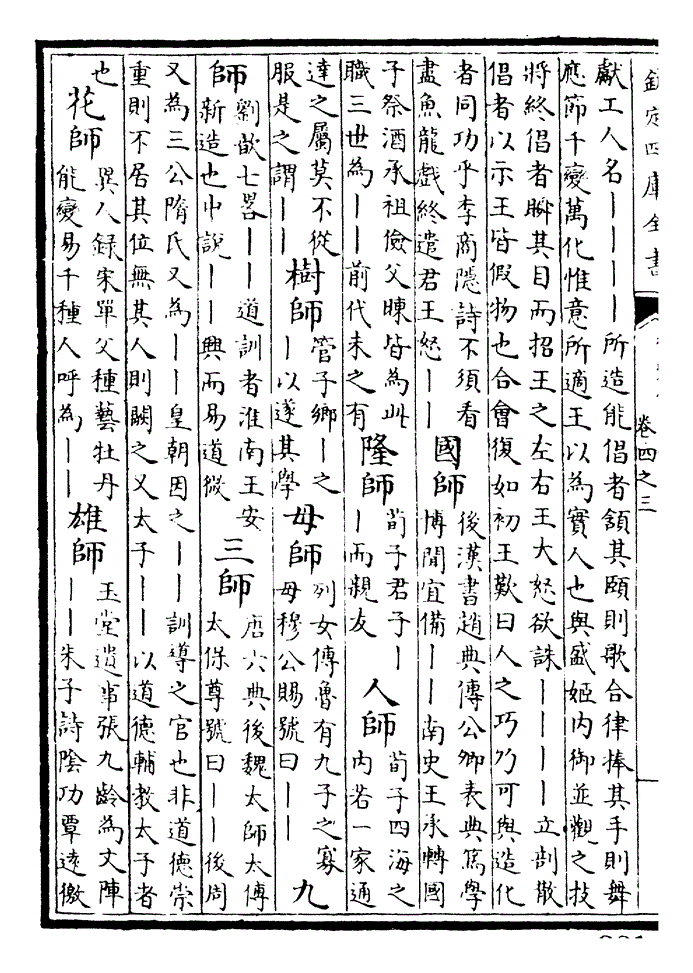 欽定四庫全書
卷四之三
獻工人名丨丨丨丨所造能倡者頷其頤則歌合律捧其手則舞
應節千變萬化惟意所適王以為實人也與盛姬內御並觀之技
將終倡者瞬其目而招王之左右王大怒欲誅丨丨丨丨立剖散
倡者以示王皆假物也合會復如初王歎曰人之巧乃可與造化
者同功乎李商隱詩不須看
盡魚龍戲終遣君王怒丨丨
國師
後漢書趙典傳公卿表典篤學
博聞宜備丨丨南史王承轉國
子祭酒承祖儉父暕皆為此
職三世為丨丨前代未之有
隆師
荀子君子丨
丨而親友
人師
荀子四海之
內若一家通
達之屬莫不從
服是之謂丨丨
樹師
管子鄉丨之
丨以遂其學
母師
列女傳魯有九子之寡
母穆公賜號曰丨丨
九
師
劉歆七畧丨丨道訓者淮南王安
新造也中說丨丨興而易道微
三師
唐六典後魏太師太傅
太保尊號曰丨丨後周
又為三公隋氏又為丨丨皇朝因之丨丨訓導之官也非道德崇
重則不居其位無其人則闕之又太子丨丨以道德輔教太子者
也
花師
異人錄宋單父種藝牡丹
能變易千種人呼為丨丨
雄師
玉堂遺事張九齡為文陣
丨丨朱子詩陰功覃遠徼